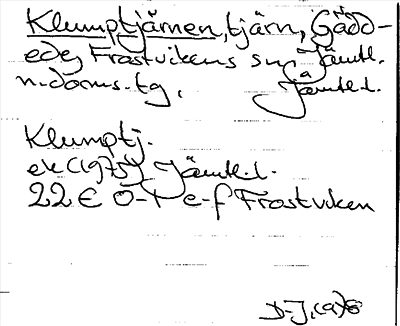 Klumptjärnen, tjärn, Gädd-
ede, Frostvikens sn, Jämtl.
n. doms. tg, Jämtl. l.
Klumptj.
ek (1975) Jämtl. l.
22 E 0-1 e-f Frostviken